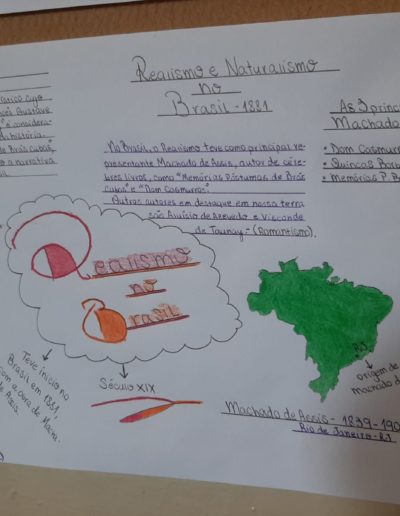 Realismo e Naturalismo
no
Brasil - 1881
No Brasil, o Realismo teve como principal re-
presentante Machado de Assis, autor de céle-
bres livros, como "Memórias Póstumas de Brás
Cubas" e "Dom Casmurro".
Outros autores em destaque em nossa terra
são Aluísio de Azevedo e Visconde
de Taunay - (Romantismo).
cujo
Gustave
é considera
história
de Brás Cubas,
a narrativa
As 3 princ
Machado
• Dom Casmurro
• Quincas Borba
• Memórias P. B
Realismo
no
Brasil
Teve início no
Brasil em 1881,
com a obra de Macha-
de Assis.
Século XIX
RJ
origem de
machado d
Machado de Assis - 1839-190
Rio de Janeiro - RJ